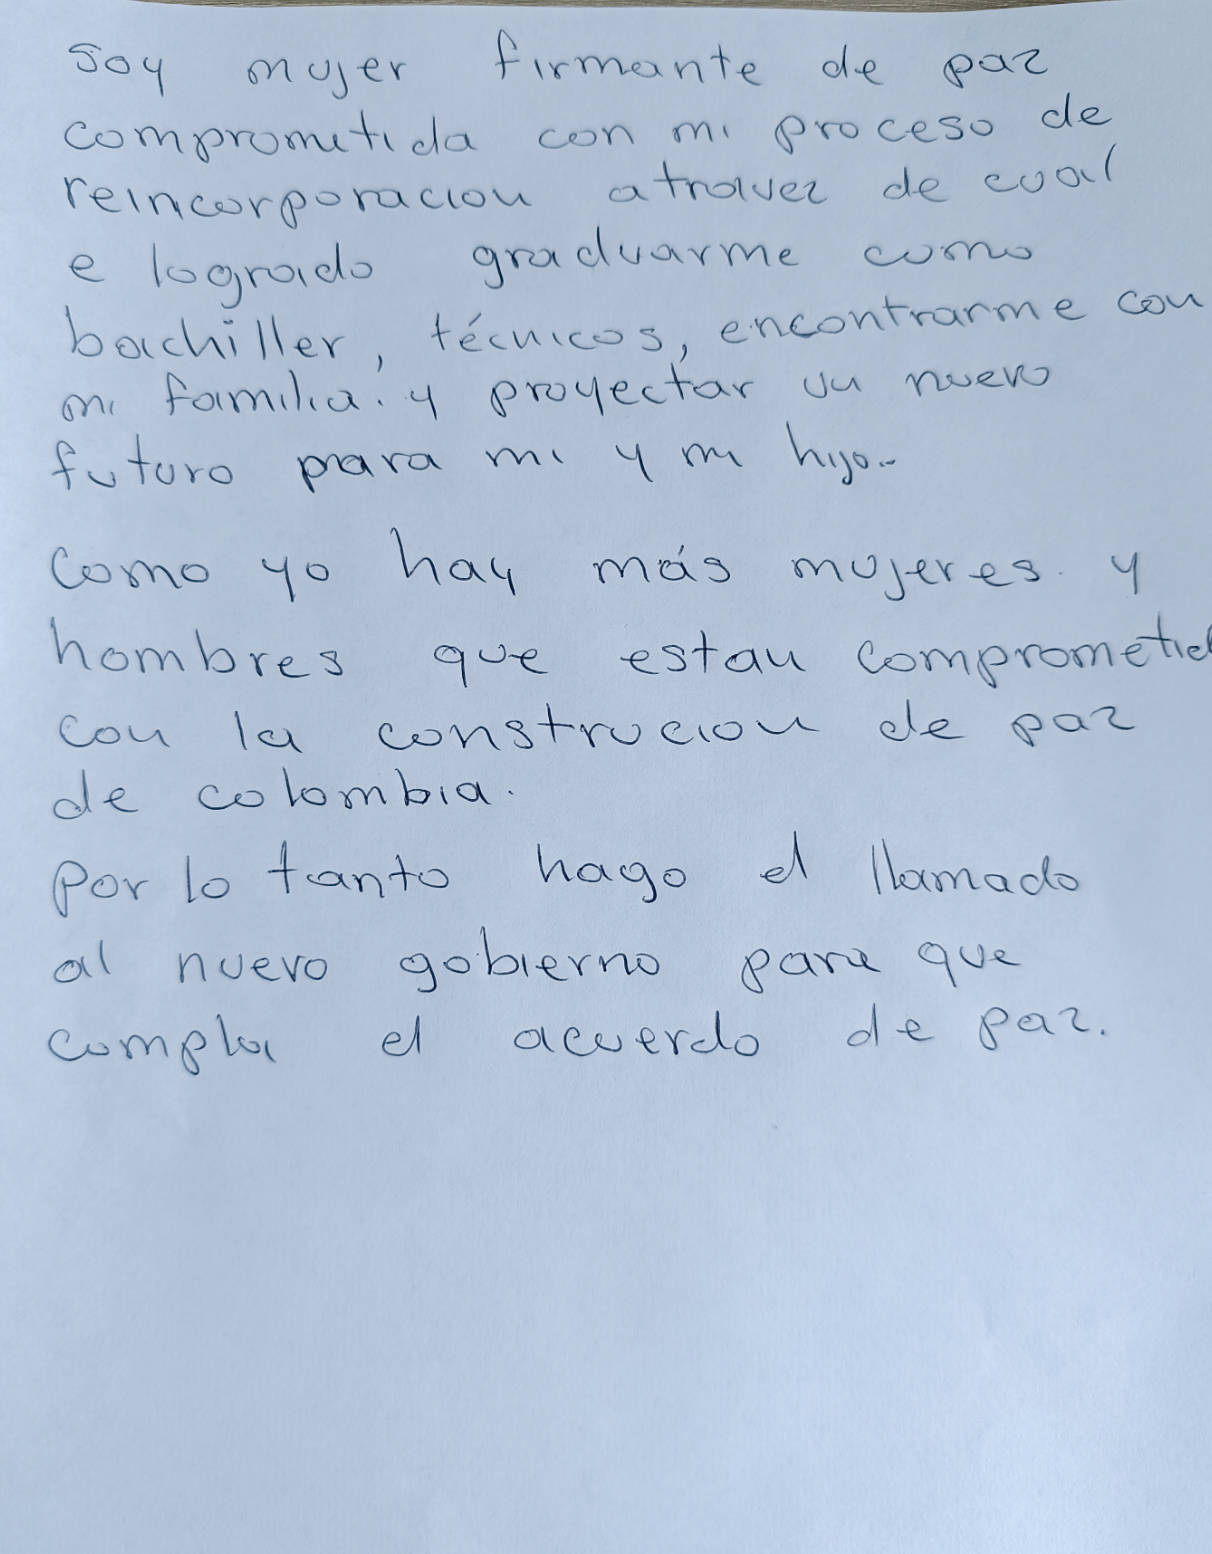 Soy mujer firmante de paz
comprometida con mi proceso de
reincorporacion atravez de cual
e logrado graduarme como
bachiller, técnicos, encontrarme con
mi familia. y proyectar un nuevo
futuro para mi y mi hijo.-
Como yo hay más mujeres. y
hombres que estan comprometid
con la construcion de paz
de colombia.
Por lo tanto hago el llamado
al nuevo gobierno para que
cumpla el acuerdo de paz.